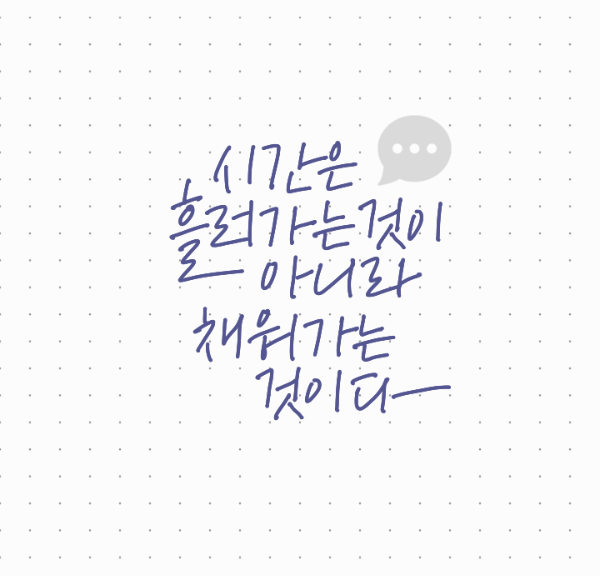 시간은
흘러가는것이
아니라
채워가는
것이다